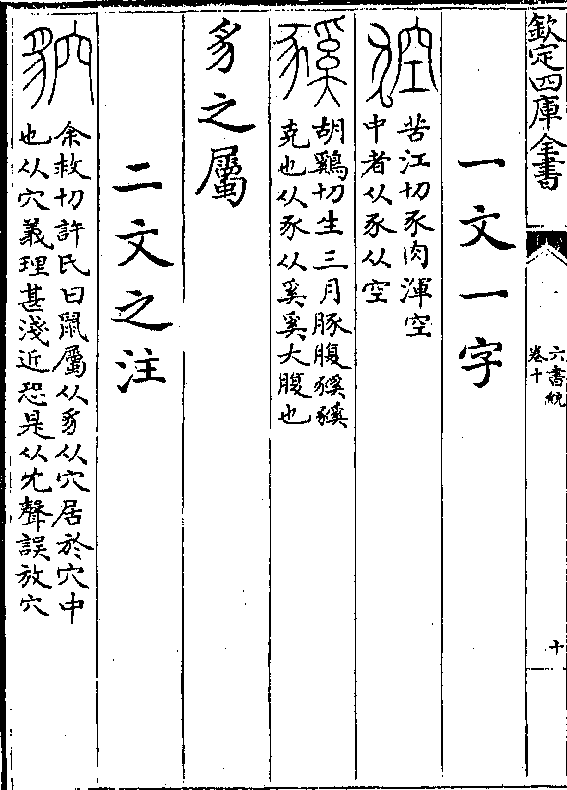 欽定四庫全書
六書統
卷十
十
一文一字
苦江切豕肉渾空
中者从豕从空
胡鷄切生三月豚腹豯豯
皃也从豕从奚奚大腹也
豸之屬
二文之注
余救切許氏曰鼠屬从豸从穴居於穴中
也从穴義理甚淺近恐是从尤聲誤放穴